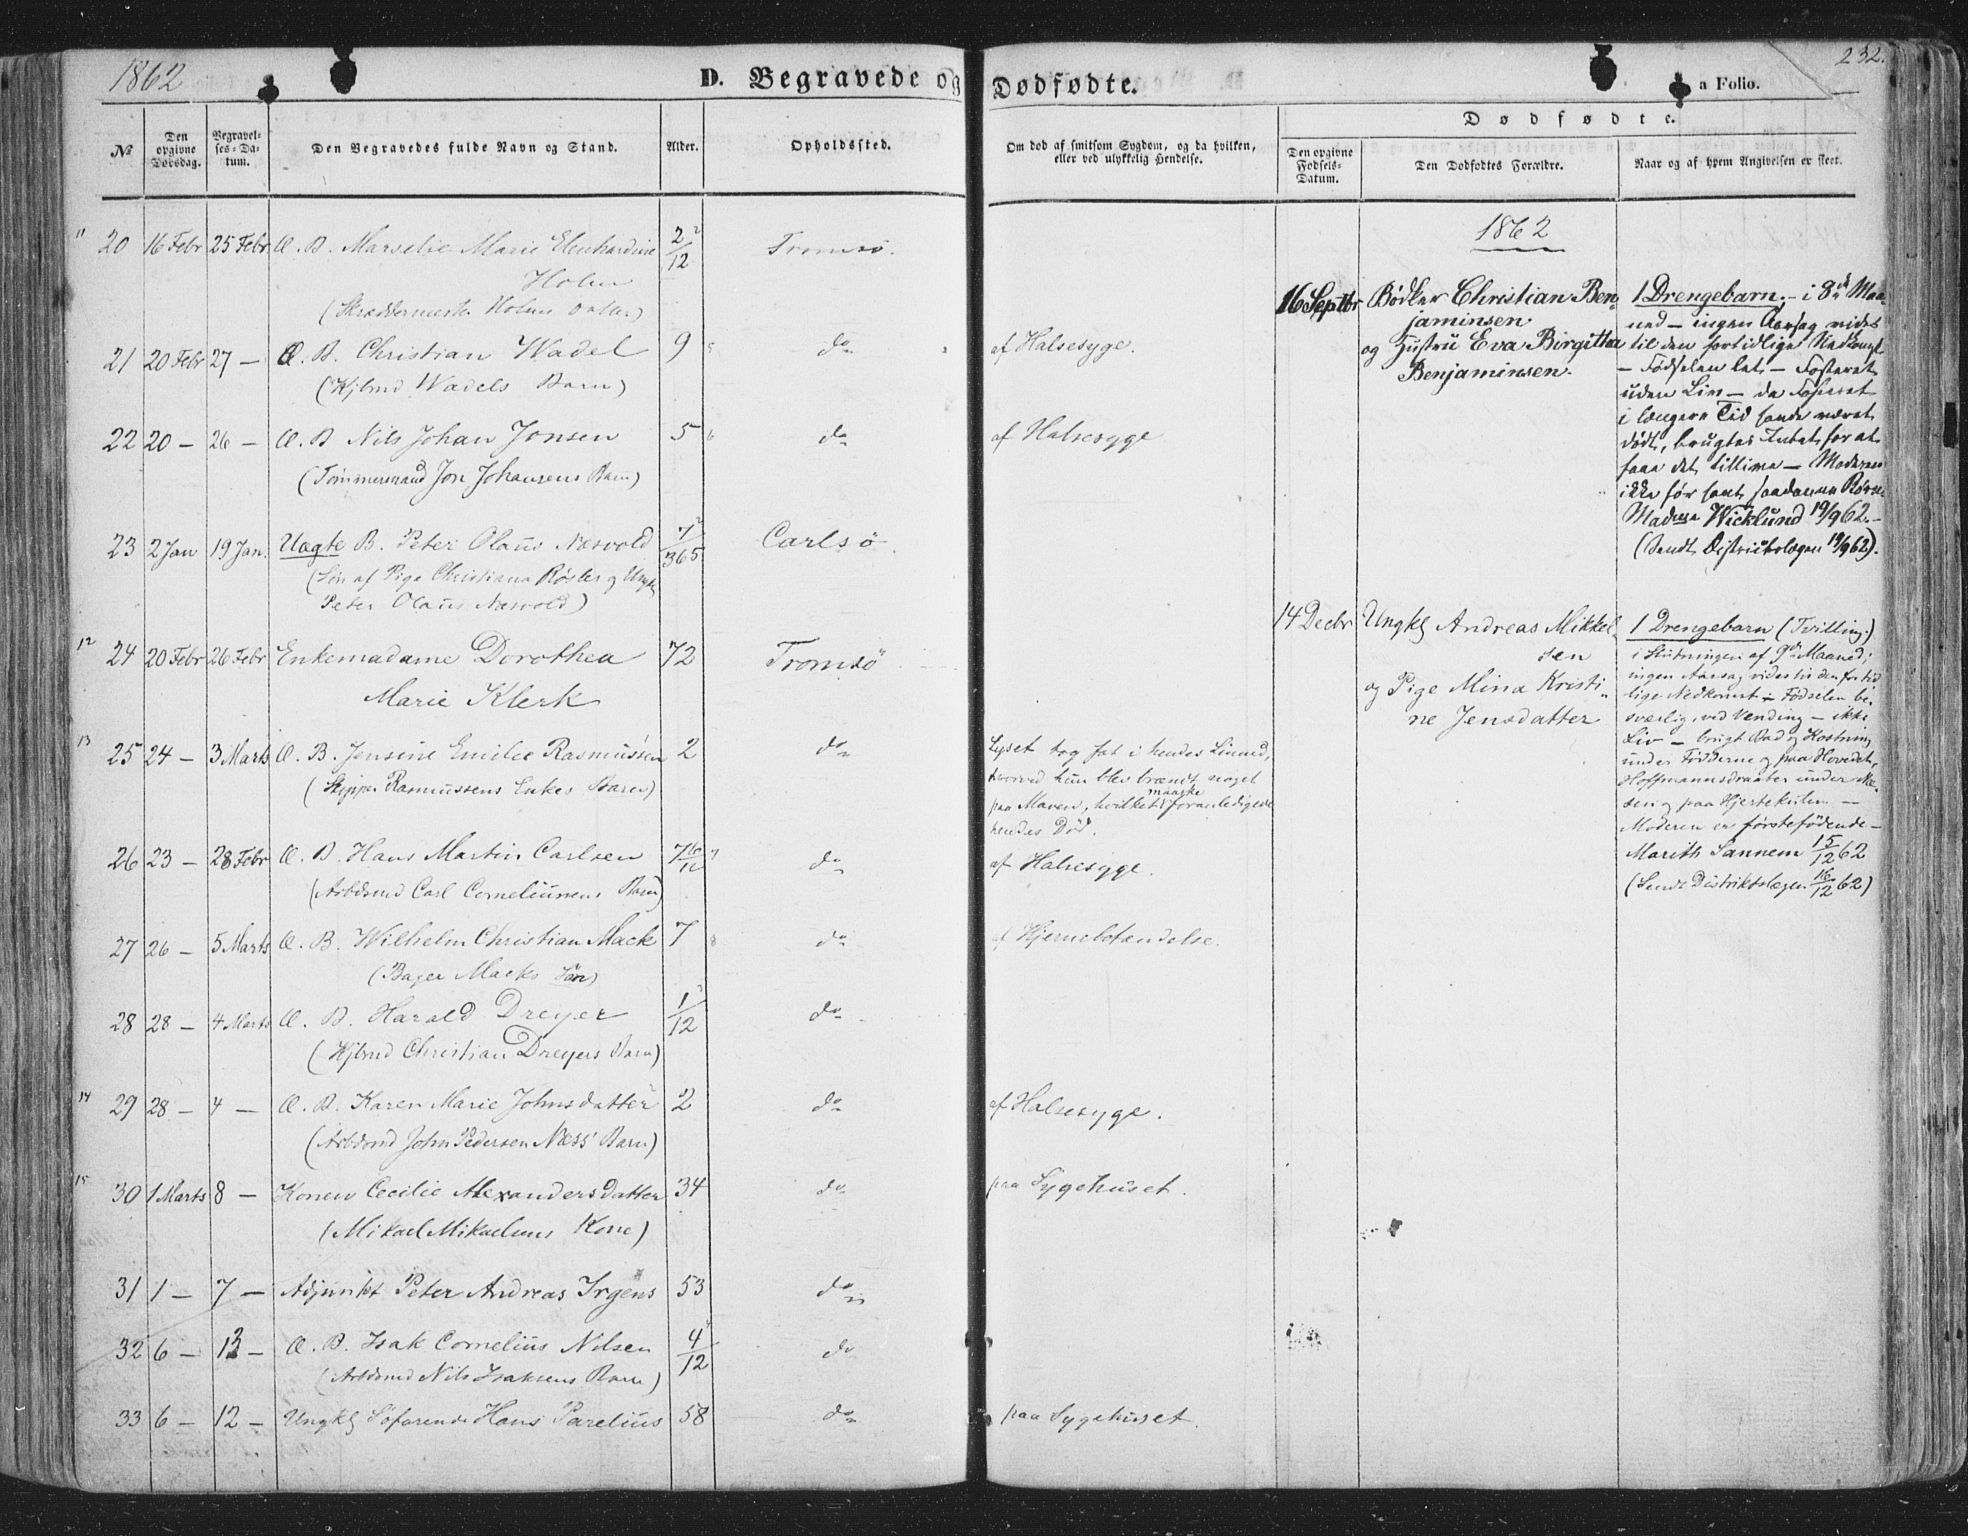 1862
D. Begravede og Dødfødte.
a Folio.
232.
№
Den opgivne Dødsdag.
Begravelses-Datum.
Den Begravedes fulde Navn og Stand.
Alder.
Opholdssted.
Om død af smitsom Sygdom, og da hvilken, eller ved ulykkelig Hendelse.
Dødfødte.
Den opgivne Fødsels-Datum.
Den Dødfødtes Forældre.
Naar og af hvem Angivelsen er skeet.
11 20 16 Febr 25 Febr Æ. B. Marselie Marie Elenhardine 2/12 Tromsø.
Holm
(Skræddermester Holms Datter)
21 20 Febr 27 — Æ. B. Christian Wadel 9 do af Halsesyge.
(Kjbmd Wadels Barn)
22 20 — 26 — Æ. B Nils Johan Jonsen 5 do af Halsesyge
(Tømmermand Jon Johansens Barn)
23 2 Jan 19 Jan. Uægte B. Peter Olaus Næsvold 7/365 Carlsø.
(Søn af Pige Christiana Røsler og Ungk
Peter Olaus Næsvold)
12 24 20 Febr 26 Febr Enkemadame Dorothea 72 Tromsø
Marie Klerk
13 25 24 — 3 Marts Æ. B. Jensine Emilie Rasmussen 2 do Lyset tog fat i hendes Linned,
(Skipper Rasmussens Enkes Barn) hvorved hun blev brændt noget
paa Maven, hvilket maaske foranledigede
hendes Død.
26 23 — 28 Febr Æ. B. Hans Martin Carlsen 7 do af Halsesyge.
(Arbdsmd Carl Corneliussens Barn)
27 26 — 5 Marts Æ. B. Wilhelm Christian Mack 7 do af Hjernebetændelse.
(Bager Macks Søn)
28 28 — 4 Marts Æ. B. Harald Dreyer 1/12 do
(Kjbmd Christian Dreyers Barn)
14 29 28 — 4 — Æ. B. Karen Marie Johnsdatter 2 do af Halsesyge.
(Arbdsmd John Pedersen Næss' Barn)
15 30 1 Marts 8 — Konen Cecilie Alexandersdatter 34 do paa Sygehuset.
(Mikael Mikaelsens Kone)
31 1 — 7 — Adjunkt Peter Andreas Irgens 53 do
32 6 — 13 — Æ. B. Isak Cornelius Nilsen 4/12 do
(Arbdsmd Nils Isaksens Barn)
33 6 — 12 — Ungk Søfarende Hans Parelius 58 do paa Sygehuset.
1862
16 Septbr Bødker Christian Ben-
jaminsen
og Hustru Eva Birgitta
Benjaminsen.
1 Drengebarn, — i 8de Maa-
ned — ingen Aarsag vides
til den fortidlige Nedkomst
— Fødselen let — Fosteret
uden Liv — da Fosteret
i længere Tid havde været
dødt, brugtes Intet for at
faae det tillive — Moderen
ikke før havt saadanne
Madame Wicklund 19/9 62. —
(Sendt Districtslægen 19/9 62).
14 Decbr Ungk Andreas Mikkel-
sen
og Pige Mina Kristi-
ne Jensdatter
1 Drengebarn (Tvilling)
i Slutningen af 9de Maaned;
ingen Aarsag vides til den fortid
lige Nedkomst — Fødselen be-
sværlig, ved Vending — ikke
Liv — brugt Bad og Kostning
under Fødderne og paa Hovedet,
Hoffmannsdraaber under Næ-
sen og paa Hjertekulen —
Moderen er førstefødende —
Marith Sannem 15/12 62
(Sendt Distriktslægen 16/12 62)